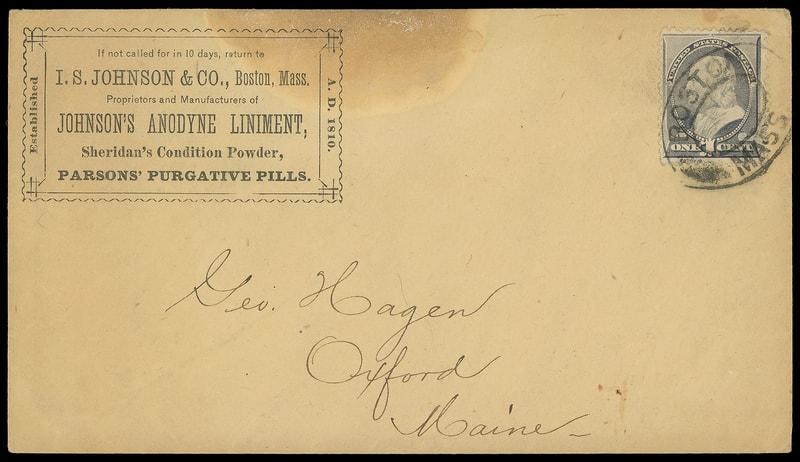 Established
If not called for in 10 days, return to
I. S. JOHNSON & CO., Boston, Mass.
Proprietors and Manufacturers of
JOHNSON'S ANODYNE LINIMENT,
Sheridan's Condition Powder,
PARSONS' PURGATIVE PILLS.
A. D. 1810.
UNITED STATES POSTAGE
ONE 1 CENT
BOSTON
MASS
Geo. Hagen
Oxford
Maine